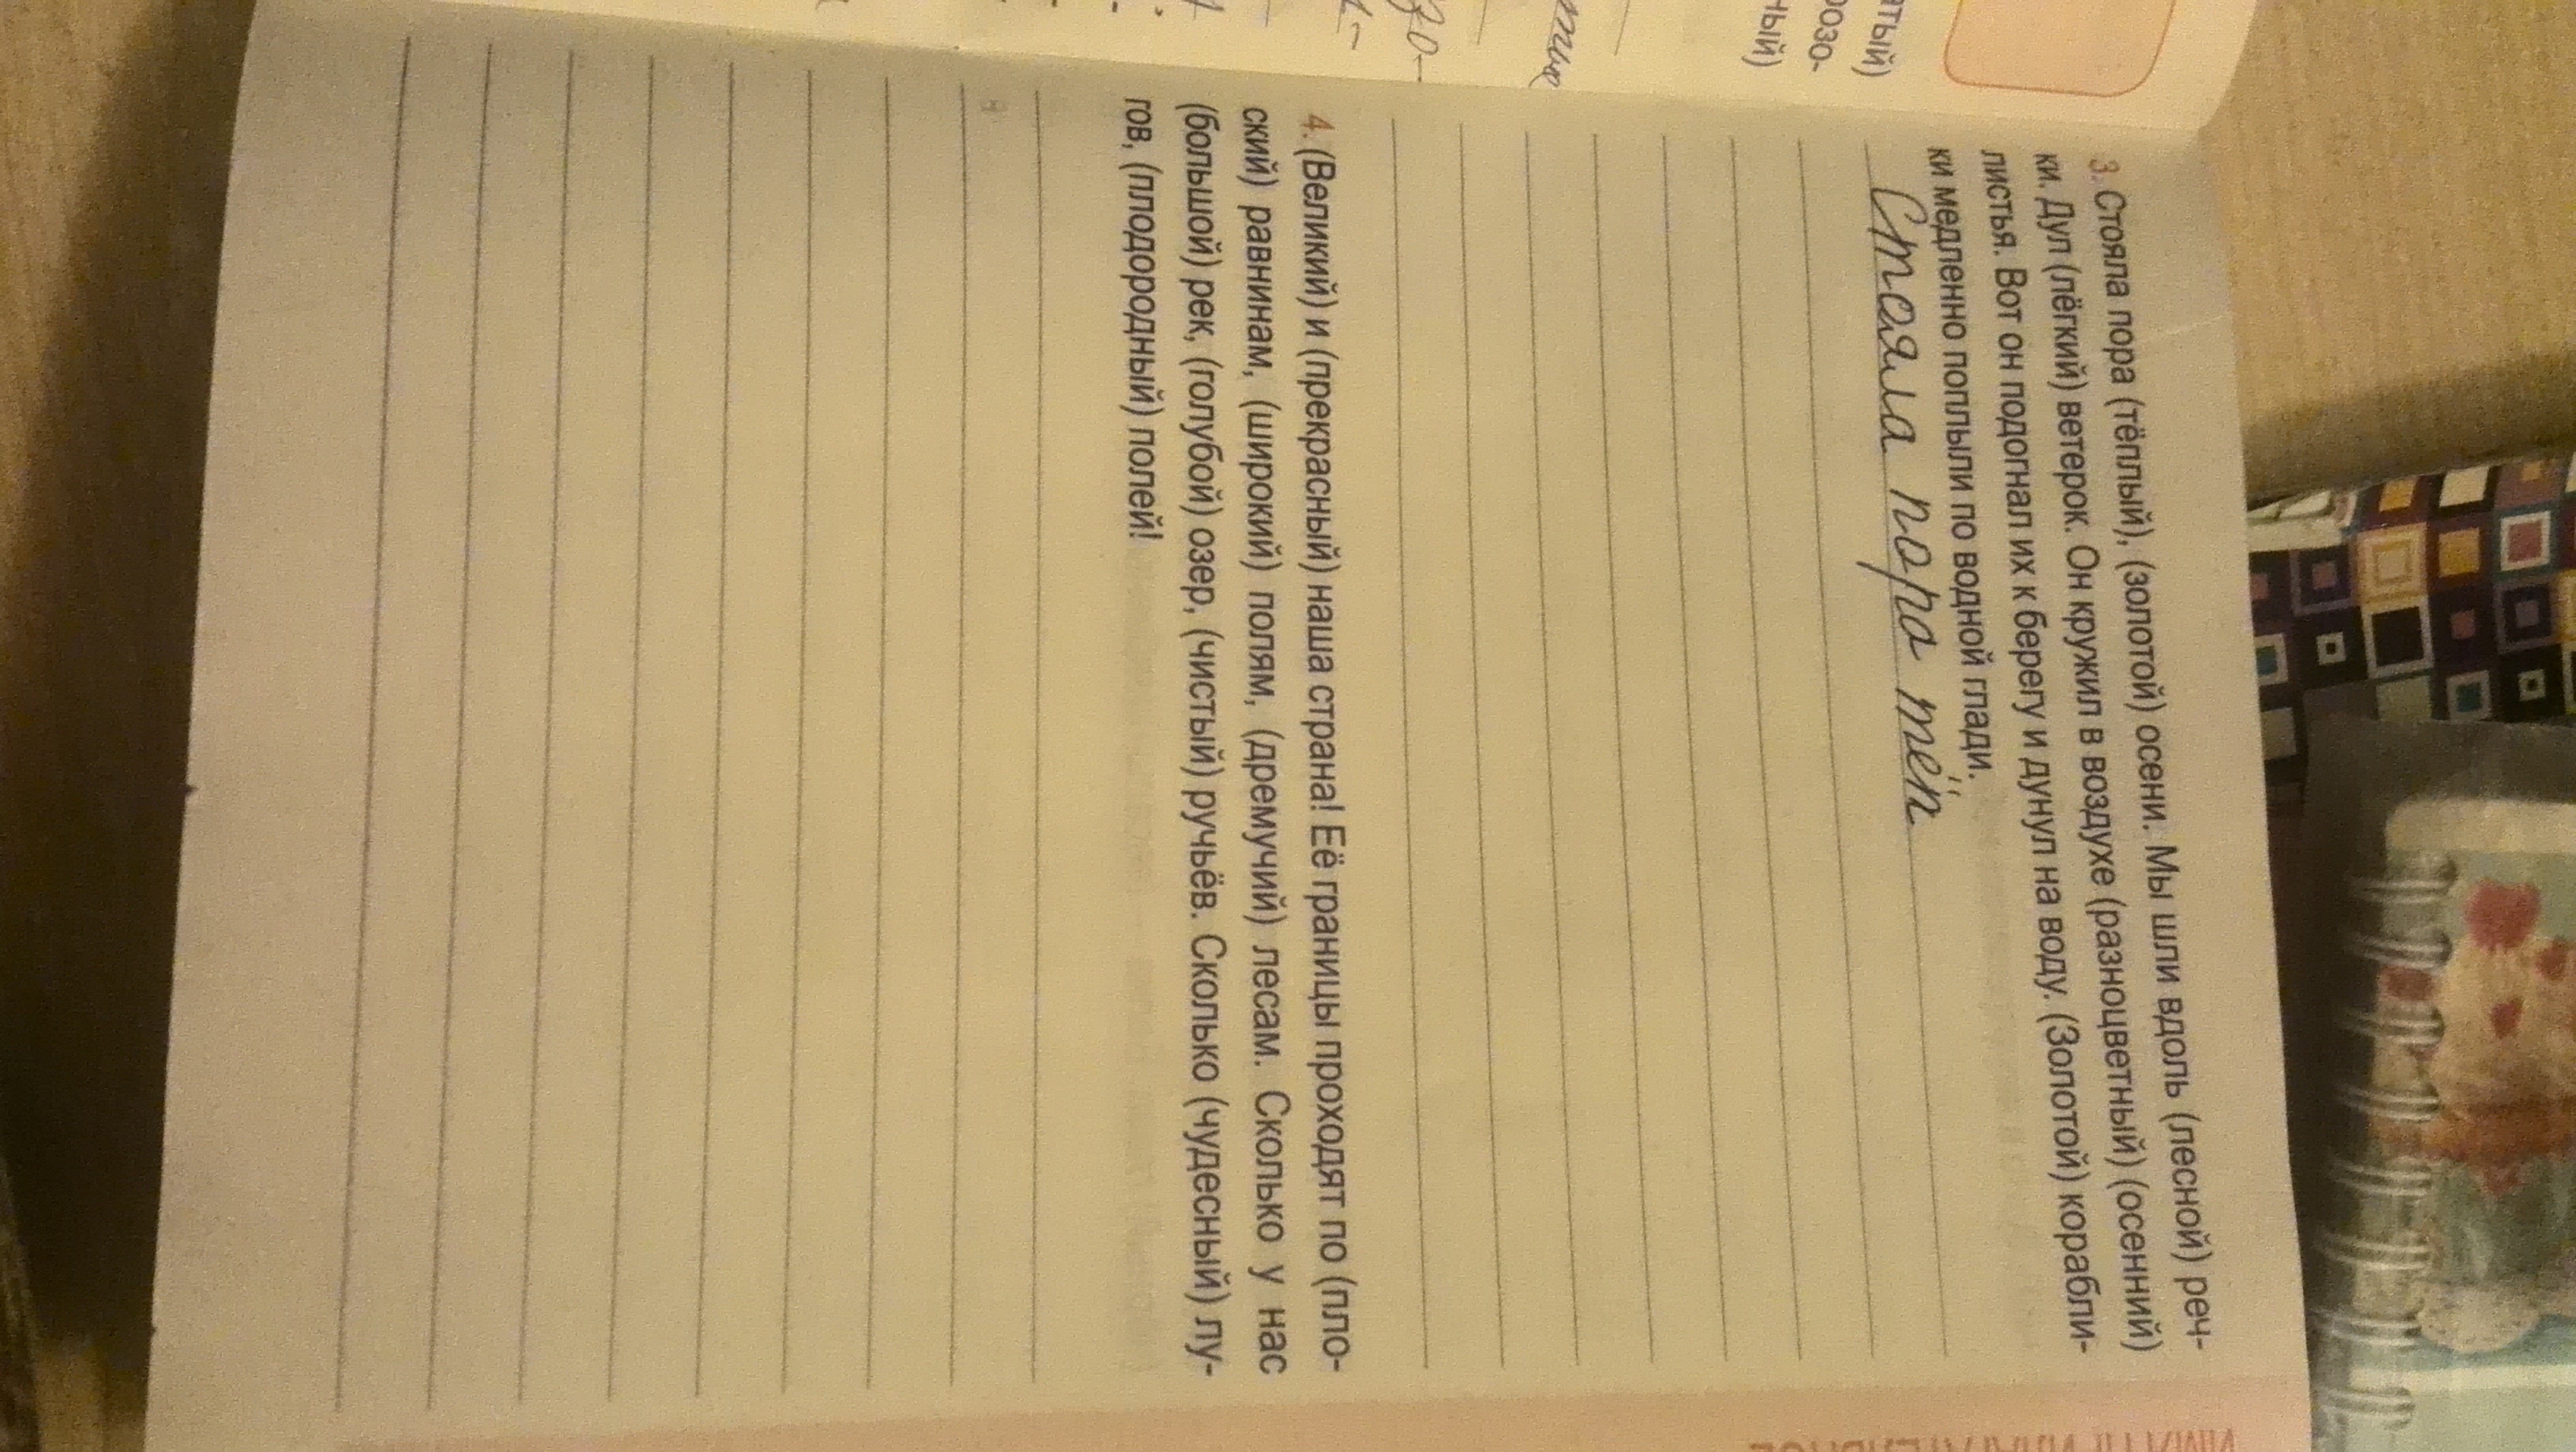 3. Стояла пора (тёплый), (золотой) осени. Мы шли вдоль (лесной) реч-
ки. Дул (лёгкий) ветерок. Он кружил в воздухе (разноцветный) (осенний)
листья. Вот он подогнал их к берегу и дунул на воду. (Золотой) корабли-
ки медленно поплыли по водной глади.
Стояла пора тёп
4. (Великий) и (прекрасный) наша страна! Её границы проходят по (пло-
ский) равнинам, (широкий) полям, (дремучий) лесам. Сколько у нас
(большой) рек, (голубой) озер, (чистый) ручьёв. Сколько (чудесный) лу-
гов, (плодородный) полей!